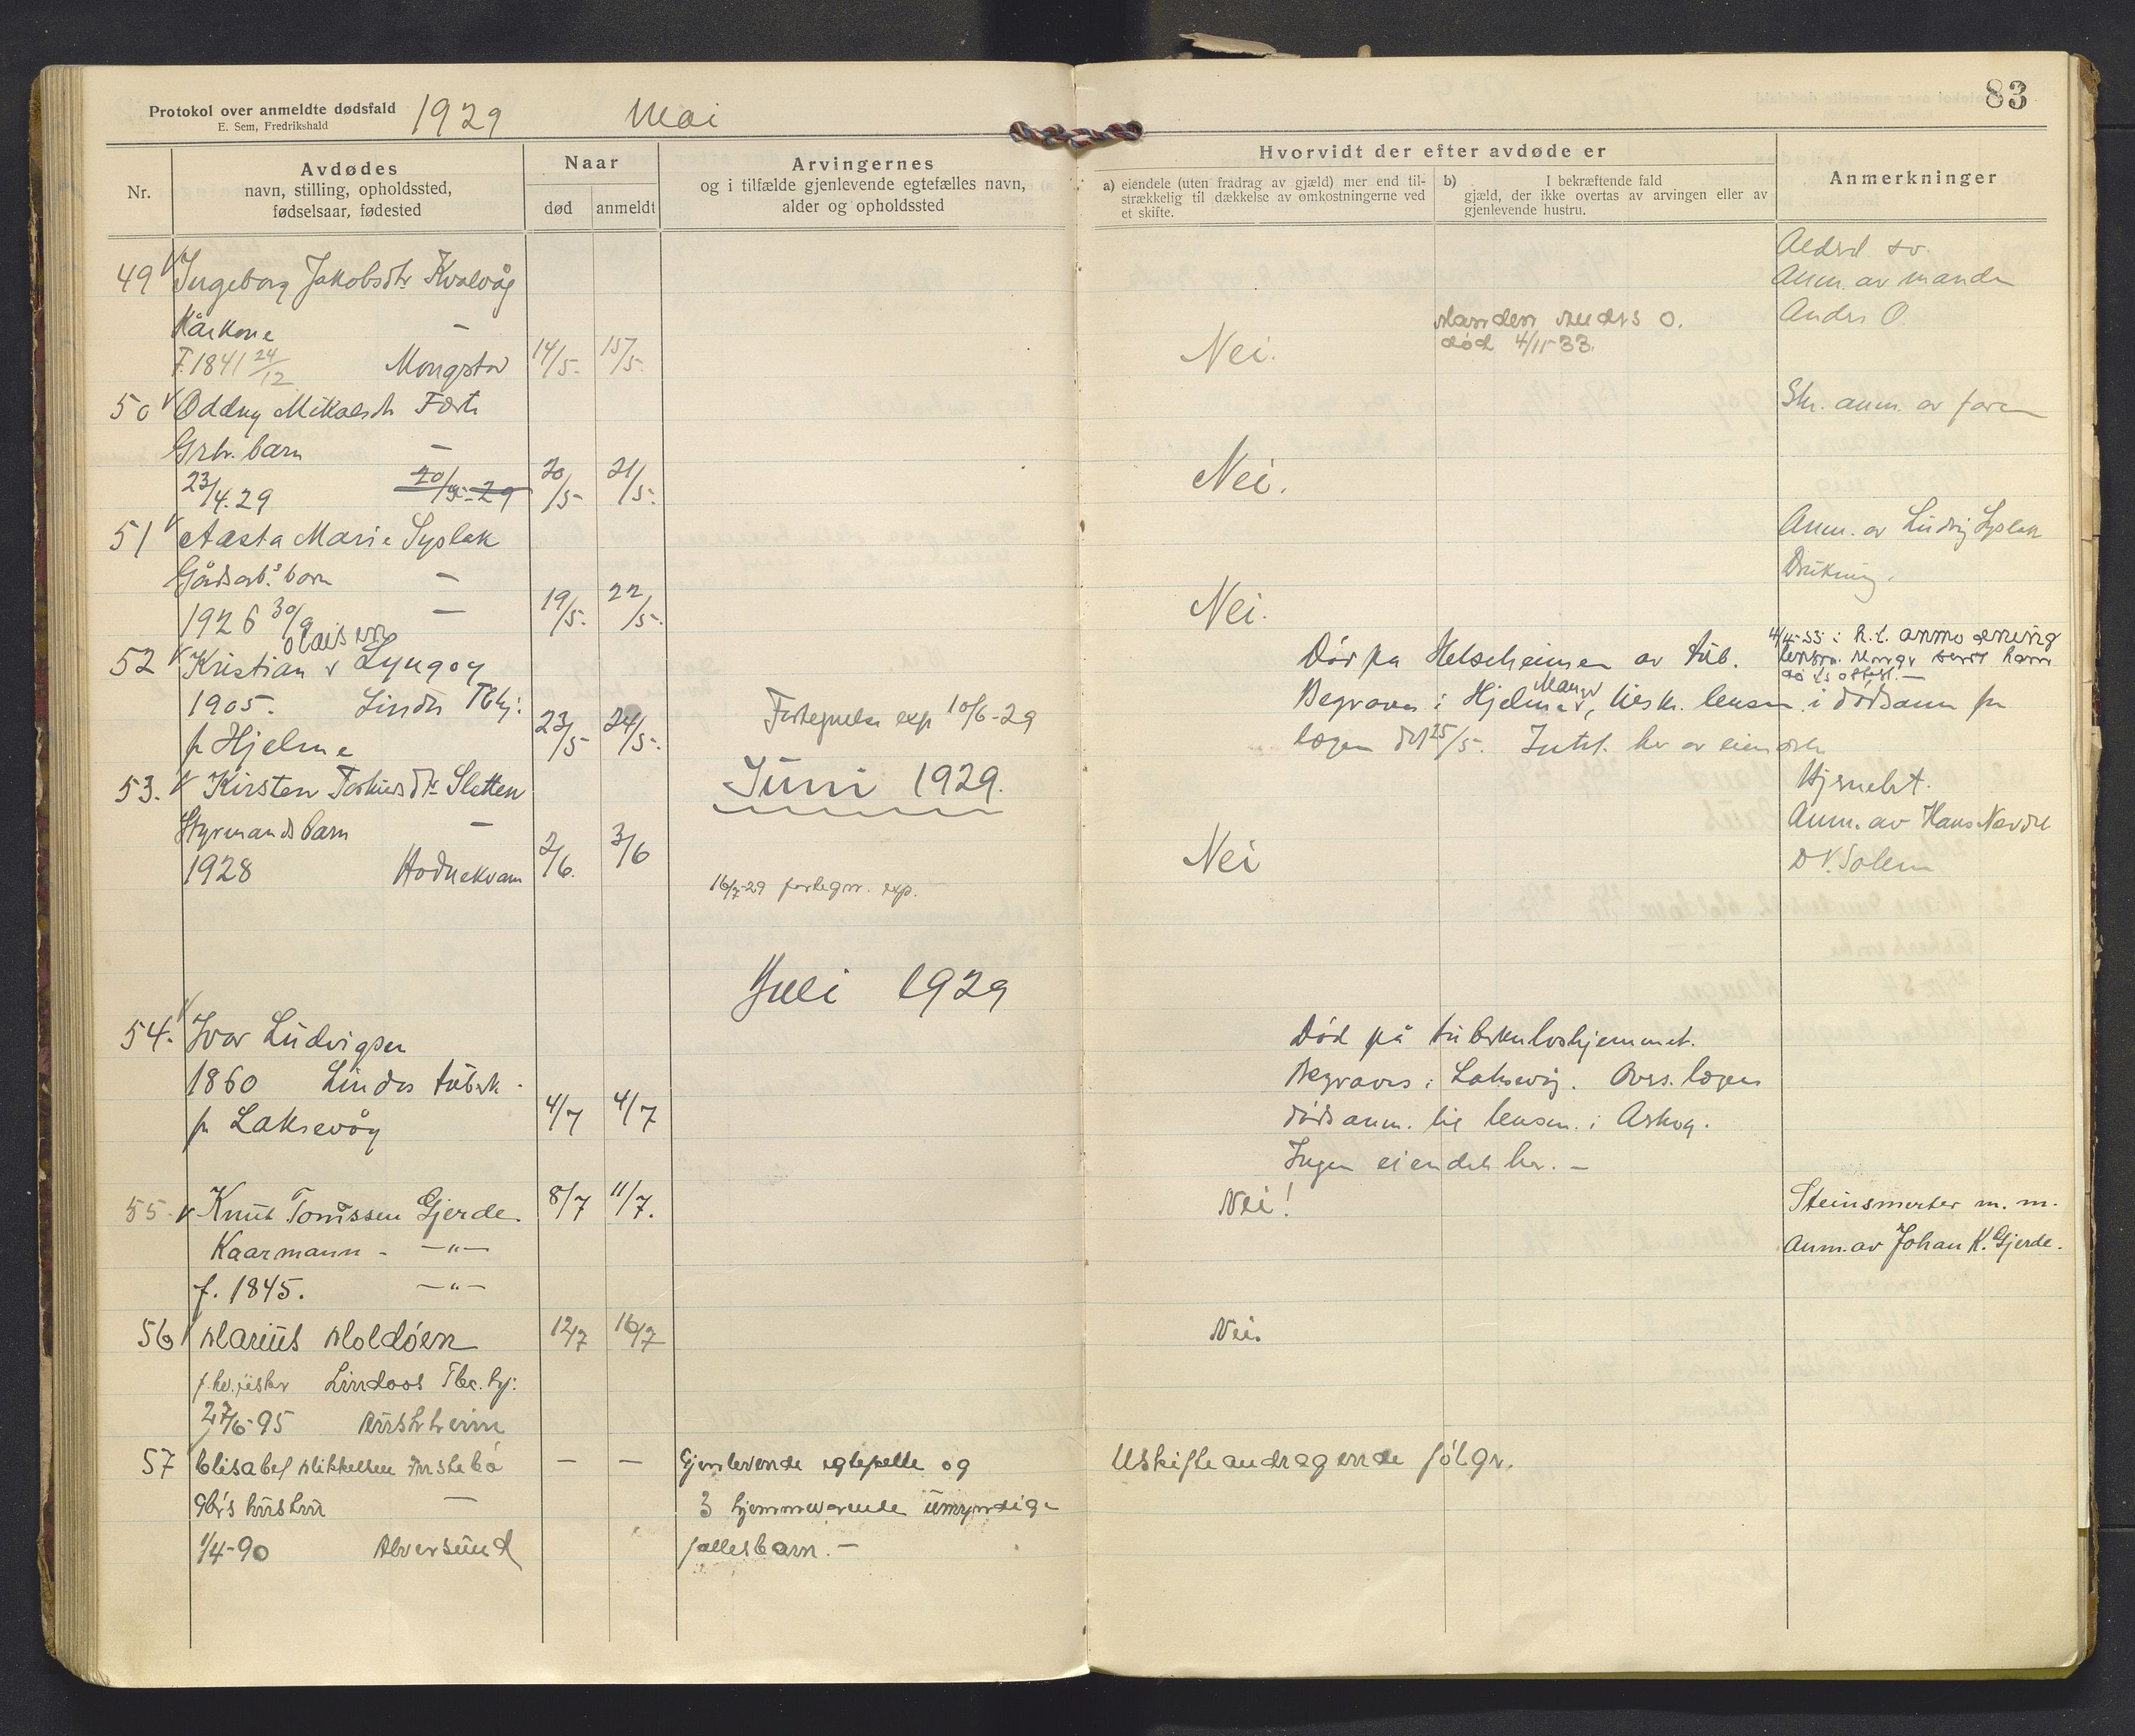 Protokol over anmeldte dødsfald
E. Sem, Fredrikshald
1929 Mai
83
Nr.
Avdødes
navn, stilling, opholdssted,
fødselsaar, fødested
Naar
død anmeldt
Arvingernes
og i tilfælde gjenlevende egtefælles navn,
alder og opholdssted
Hvorvidt der efter avdøde er
a) eiendele (uten fradrag av gjæld) mer end til-
strækkelig til dækkelse av omkostningerne ved
et skifte.
b) I bekræftende fald
gjæld, der ikke overtas av arvingen eller av
gjenlevende hustru.
Anmerkninger
49 Ingeborg Jakobsdtr Kvalvåg
Kårkone —
F. 1841 24/12 Mongstad 14/5. 15/5.
Nei.
Manden Anders O.
død 4/11-33.
Anm. av manden
Anders O.
50 Oddny Mikalsdtr
Grbr. barn —
23/4.29 20/5-29 20/5- 21/5.
Nei.
Skr. anm. av faren
51 Aasta Marie Syslak
Gårdsarb.s barn —
1926 30/9 — 19/5. 22/5.
Nei.
Anm. av Ludvig Syslak
Drukning.
52 Kristian Olais Lyngøy
1905. Lindås Tbhj.
fr Hjelme 23/5- 24/5-.
Fortegnelse exp 10/6-29
Død på Helseheimen av tub.
Begraves i Hjelme, Manger
lægen 25/5.
53. Kirsten Slotten
Styrmands barn —
1928 Hodnekvam 2/6. 3/6
Juni 1929.
16/7-29 fortegn. exp.
Nei
Anm. av Hans Nævdal
D V. Solem
Juli 1929
54. Ivar Ludvigsen
1860 Lindås tubrk.
fr Laksevåg 4/7 4/7
Død på tuberkuloshjemmet.
Begraves i Laksevåg. Overs. lægens
dødsanm. til lensm. i Askøy.
Ingen eiendele her. —
55. Knut Tomassen Gjerde. 8/7 11/7.
Kaarmann - —"—
f. 1845. —"—
Nei!
Steinsmerter m. m.
Anm. av Johan K. Gjerde.
56 Marius Moldöen 12/7 16/7
Lindaas Tbc. hj:
27/6-95 Austrheim
Nei.
57 Elisabet Mikkelsen Instebö — —
gbr's hustru —
1/4-90 Alversund
Gjenlevende egtefelle og
3 hjemmeværende umyndige
fellesbarn. —
Uskifteandragende fölger.